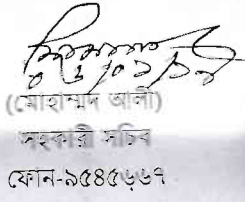 (মোহাম্মদ আলী)
সহকারী সচিব
ফোন-৯৫৪৫৬৬৭